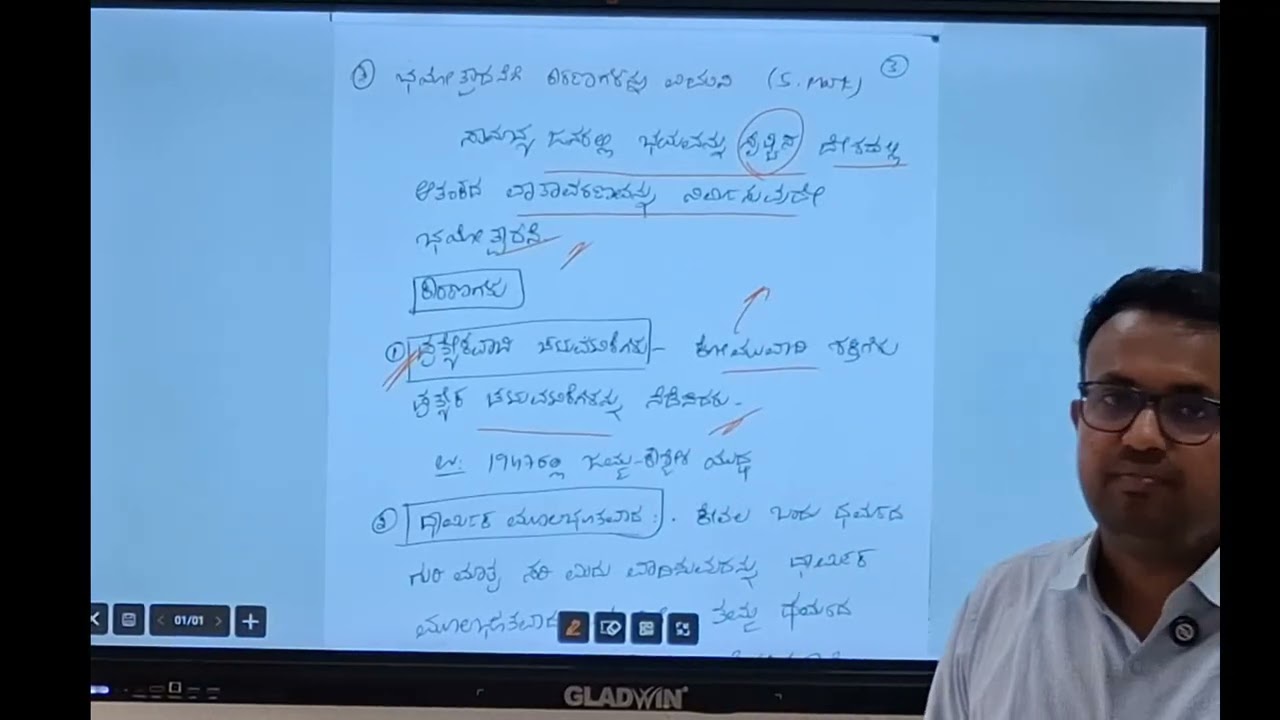 ೨ ಭಯೋತ್ಪಾದನೆಗೆ ಕಾರಣಗಳನ್ನು ವಿವರಿಸಿ (5. ಅಂಕ) 3
ಸಾಮಾನ್ಯ ಜನರಲ್ಲಿ ಭಯವನ್ನು ಸೃಷ್ಟಿಸಿ ದೇಶದಲ್ಲಿ
ಆತಂಕದ ವಾತಾವರಣವನ್ನು ನಿರ್ಮಿಸುವುದೇ
ಭಯೋತ್ಪಾದನೆ
ಕಾರಣಗಳು
೧ ಪ್ರತ್ಯೇಕವಾದಿ ಚಳುವಳಿಗಳು - ಕೋಮುವಾದಿ ಶಕ್ತಿಗಳು
ಪ್ರತ್ಯೇಕ ಚಳುವಳಿಗಳನ್ನು ನಡೆಸಿದರು.
ಉ: 1947ರಲ್ಲಿ ಜಮ್ಮು-ಕಾಶ್ಮೀರ ಯುದ್ಧ
೨ ಧಾರ್ಮಿಕ ಮೂಲಭೂತವಾದ: ಕೇವಲ ಒಂದು ಧರ್ಮದ
ಗುರಿ ಮಾತ್ರ ಸರಿ ಎಂದು ವಾದಿಸುವುದನ್ನು ಧಾರ್ಮಿಕ
ಮೂಲಭೂತವಾದ ತಮ್ಮ ಧರ್ಮದ
01/01
GLADWIN